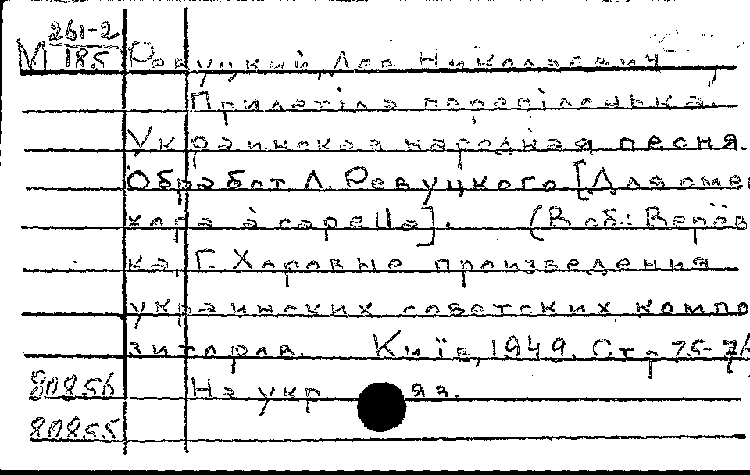 261-2
М 185 Ревуцкий, Лев Николаевич
Прилетiла перепiлонька.
Украинская народная песня.
Обработ. Л. Ревуцкого [Для сме
хора à capella]. (В сб.: Верёв
ка, Г. Хоровые произведения
украинских советских компо
зиторов. Київ, 1949. Стр 75-76
80856 На укр яз.
80855